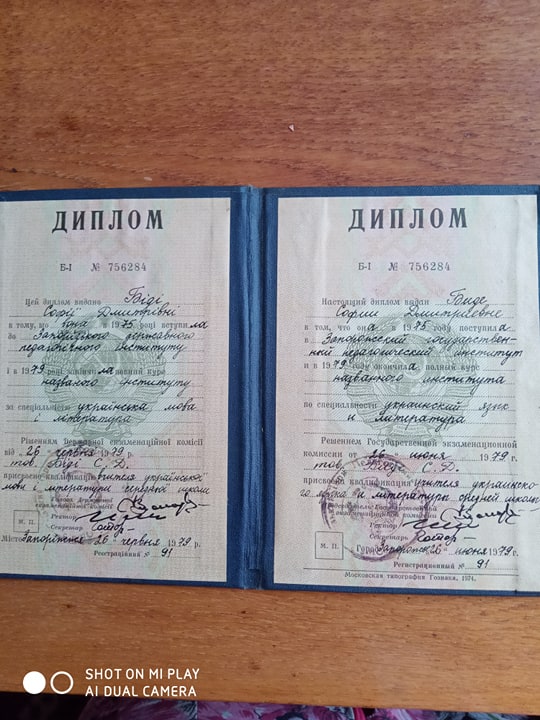 ДИПЛОМ
Б-І № 756284
Цей диплом видано Біді
Софії Дмитрівні
в тому, що вона в 1975 році вступила
до Запорізького державного
педагогічного інституту
і в 1979 році закінчила повний курс
названого інституту
за спеціальністю українська мова
і література
Рішенням Державної екзаменаційної комісії
від 26 червня 1979 р.
тов. Біді С. Д.
присвоєно кваліфікацію вчителя української
мови і літератури середньої школи
Голова Державної
екзаменаційної комісії
Ректор
Секретар
М. П.
Місто Запоріжжя 26 червня 1979 р.
Реєстраційний № 91
ДИПЛОМ
Б-І № 756284
Настоящий диплом выдан Биде
Софии Дмитриевне
в том, что она в 1975 году поступила
в Запорожский государствен-
ный педагогический институт
и в 1979 году окончила полный курс
названного института
по специальности украинский язык
и литература
Решением Государственной экзаменационной
комиссии от 26 июня 1979 г.
тов. Биде С. Д.
присвоена квалификация учителя украинско-
го языка и литературы средней школы
Председатель Государственной
экзаменационной комиссии
Ректор
Секретарь
М. П.
Город Запорожье 26 июня 1979 г.
Регистрационный № 91
Московская типография Гознака. 1974.
SHOT ON MI PLAY
AI DUAL CAMERA